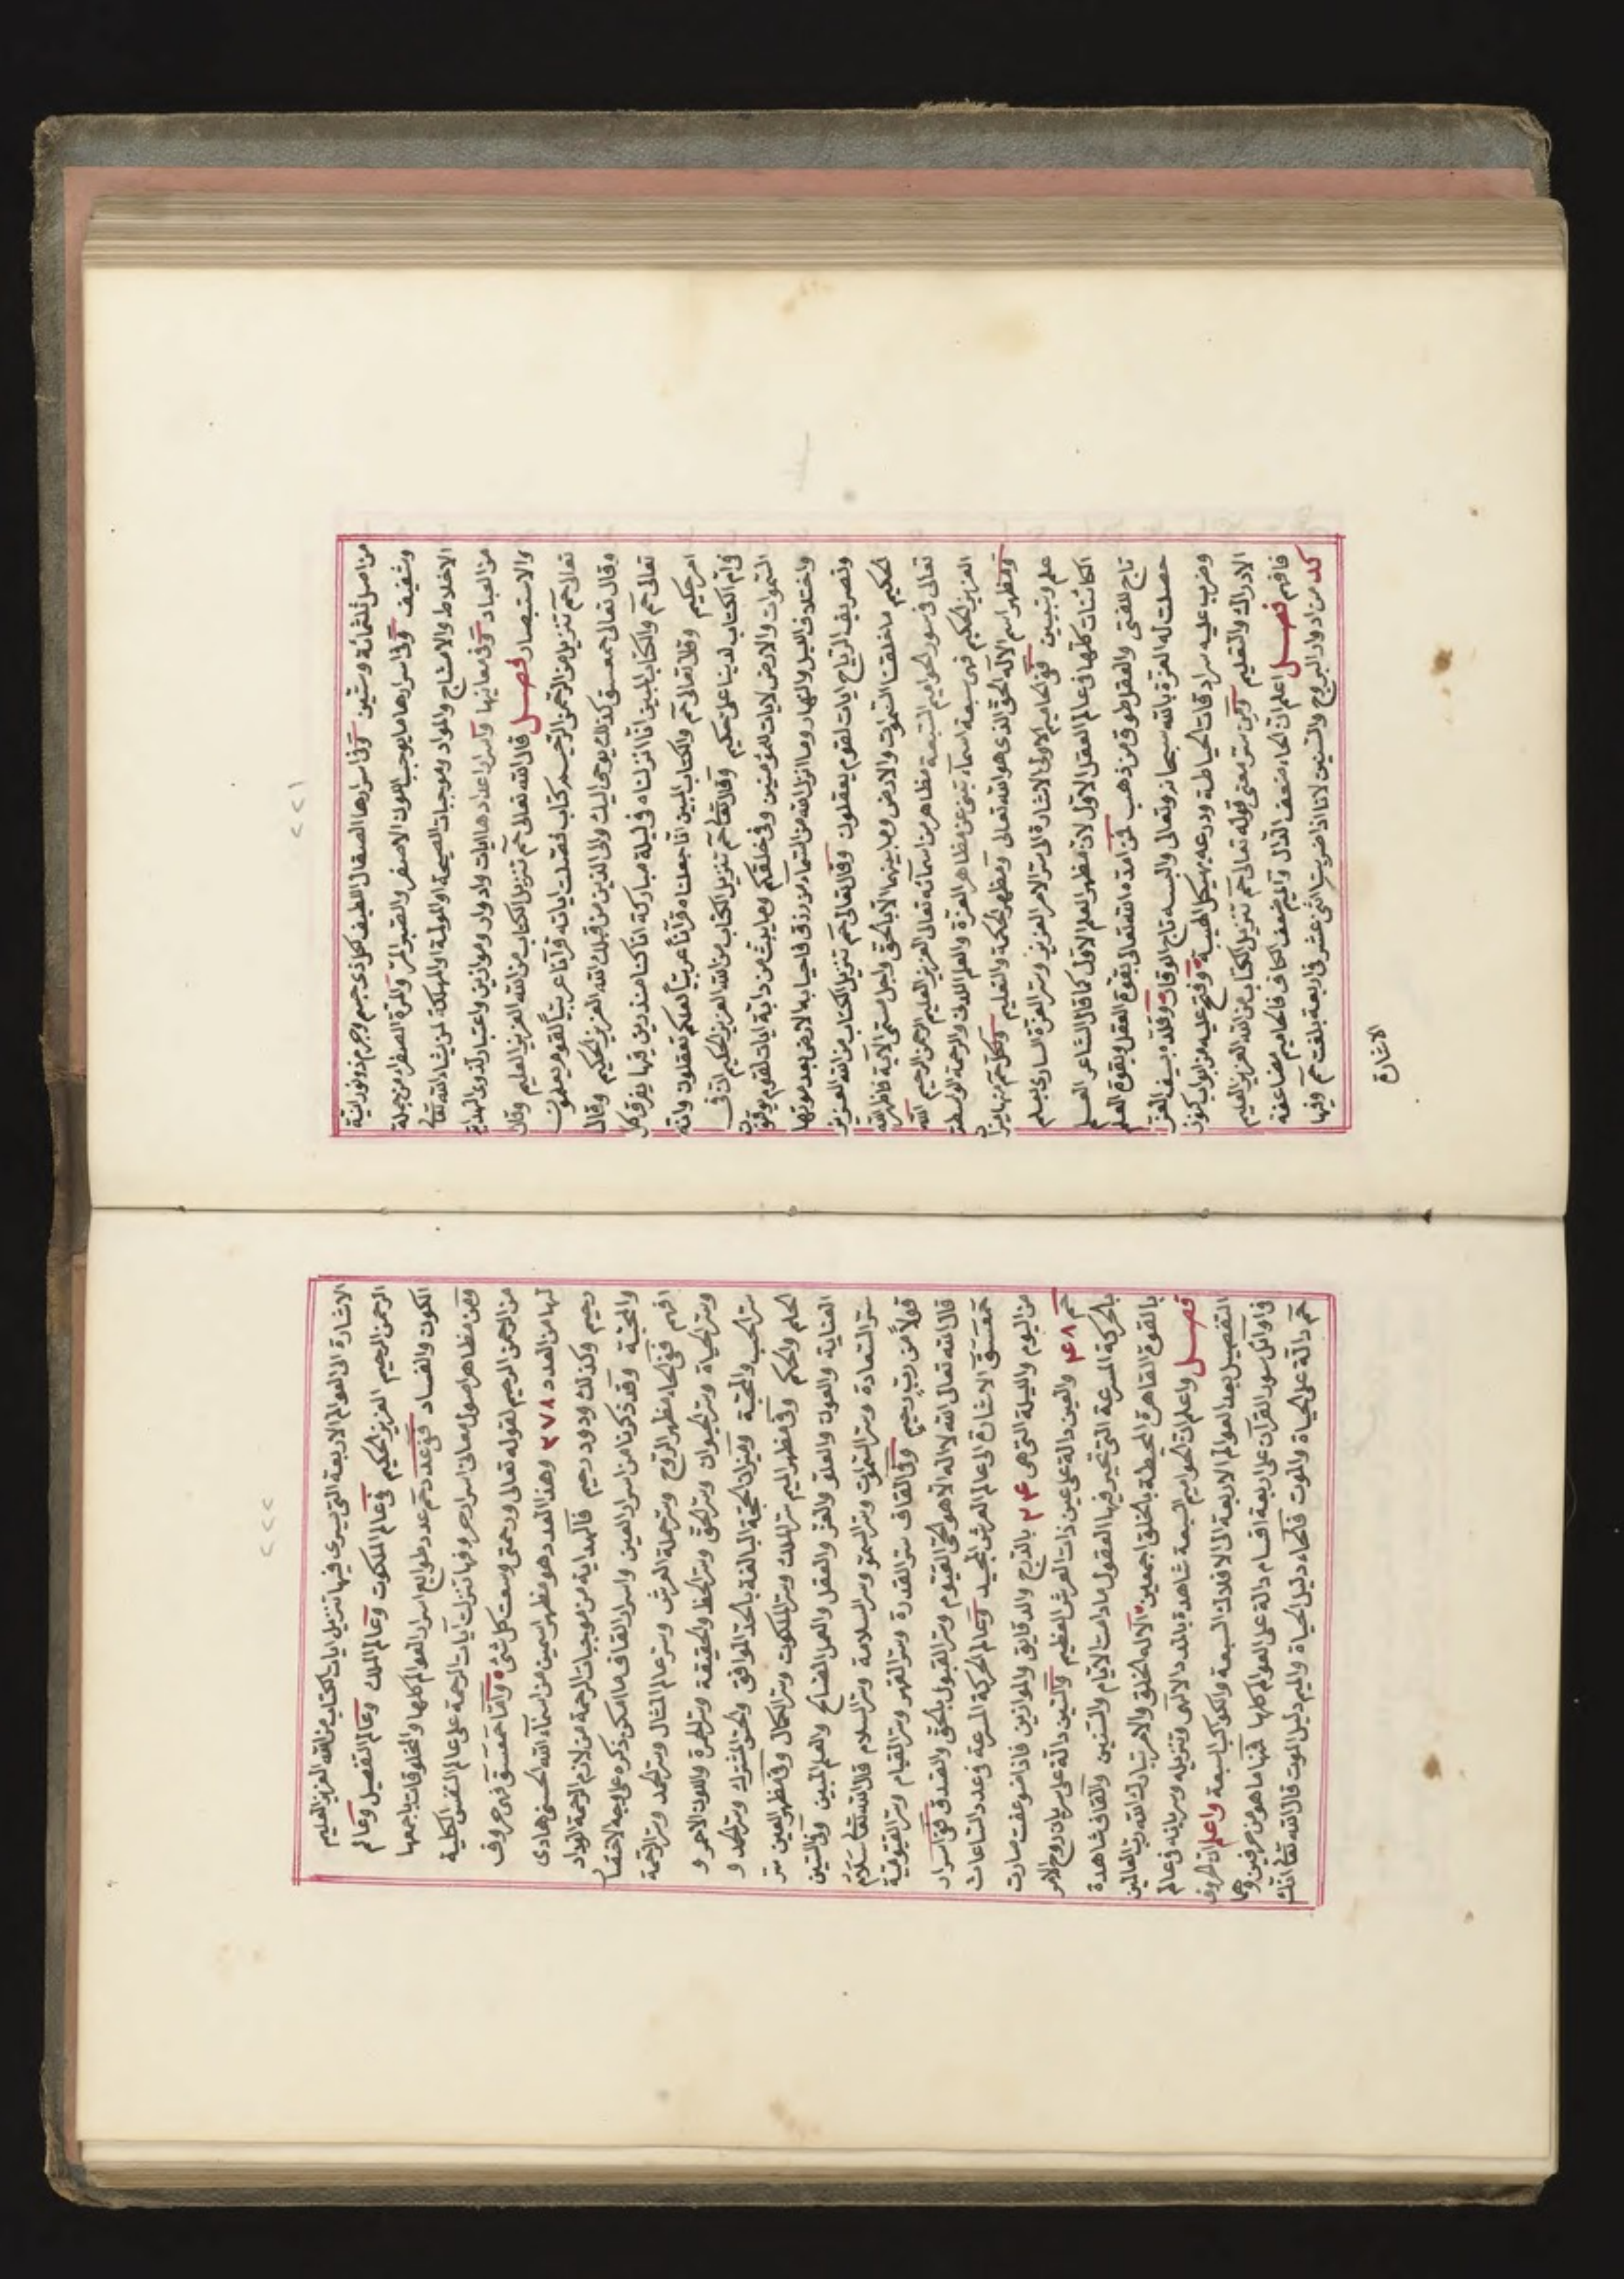 ٢٢١
من اصل ثلثمائة وستين وفى اسرارها الصقال اللطيف لكل ذى جسم وجرم ذو نورانية
وشفيف وفى اسرارها ما يوجب اللون الاصفر والصبر المر والمرة الصفراء من جملة
الاخلاط والامشاج والمواد وموجبات الصحة والمولمة والمهلكة لمن يشاء الله تعالى
من العباد وفى معانيها واسرار اعدادها ايات وادوار وموازين واعتبار لذوى الهداية
والاستبصار فصل قال الله تعالى حم تنزيل الكتاب من الله العزيز العليم وقال
تعالى حم تنزيل من الرحمن الرحيم كتاب فصلت اياته قرآنا عربيا لقوم يعلمون
وقال تعالى حمعسق كذلك يوحى اليك والى الذين من قبلك الله العزيز الحكيم وقال
تعالى حم والكتاب المبين انا انزلناه فى ليلة مباركة انا كنا منذرين فيها يفرق كل
امر حكيم وقال تعالى حم والكتاب المبين انا جعلناه قرآنا عربيا لعلكم تعقلون وانه
فى ام الكتاب لدينا لعلى حكيم وقال تعالى حم تنزيل الكتاب من الله العزيز الحكيم ان فى
السموات والارض لايات للمؤمنين وفى خلقكم وما يبث من دابة ايات لقوم يوقنون
واختلاف الليل والنهار وما انزل الله من السماء من رزق فاحيا به الارض بعد موتها
وتصريف الرياح ايات لقوم يعقلون وقال تعالى حم تنزيل الكتاب من الله العزيز
الحكيم ما خلقنا السموات والارض وما بينهما الا بالحق واجل مسمى الآية فاظهر الله
تعالى فى سور الحواميم السبعة مظاهر من اسمائه تعالى العزيز العليم الرحمن الرحيم الله
العزيز الحكيم فهى سبعة اسماء تنبى عن مظاهر العزة والعلم اللدنى والرحمة الواسطة
ومظهر اسم الاله الحق الذى هو الله تعالى ومظهر الحكمة والتعليم وكل حم منها ميزان
علم وتبيين ففى الحاميم الاولى الاشارة الى سر الامر العزيز وسر العزة السارى بعلم
الكائنات كلها فى عالم العقل الاول لان مظهر العلم الاول كما قال الشاعر العلم
تاج للفتى والعقل طوق من ذهب فمن امده الله تعالى بقوة العقل وبقوة العلم
حصلت له العزة بالله سبحانه وتعالى والبسه تاج الوقار وقلده بسيف العز
وضرب عليه سرادقات الحياطة ودرعه بهيكل الهيبة وفتح عليه من ابواب كنوز
الادراك والتعليم وتبين سر معنى قوله تعالى حم تنزيل الكتاب من الله العزيز العليم
فافهم فصل اعلم ان الحاء منعف الدال والميم ضعف الكاف فالحاميم مضاعفة
كد من ادوار البروج والسنين لانا اذا ضربت اثنى عشر فى اربعة بلغت حم وفيها
الاشارة
٢٢٢
الاشارة الى العوالم الاربعة التى سرى فيها تنزيل ايات الكتاب من الله العزيز العليم
الرحمن الرحيم العزيز الحكيم فى عالم الملكوت وعالم الملك وعالم التفصيل وعالم
الكون والفساد ففى عدد حم عدد طوابع اسرار العوالم كلها والمخلوقات باجمعها
فمن مظاهر اصول معانى اسرار حروفها تنزلت آيات الرحمة على عالم النفس الكلية
من الرحمن الرحيم لقوله تعالى ورحمتى وسعت كل شئ واما حمعسق فهى حروف
لها من العدد ٢٧٨ وهذا العدد هو مظهر اسمين من اسماء الله الحسنى هادى
رحيم وكذلك ودود رحيم فالهداية من موجبات الرحمة من لازم الرحمة الوداد
والمحبة وقد ذكرنا من اسرار العين واسرار القاف ما امكن ذكره على وجه الاختصار
افهم ففى الحاء مظهر الروح وسر حملة العرش وسر عالم المثال وسر الحمد وسر الرحمة
وسر الحياة وسر الحيوان وسر الحق وسر الحظ والحقيقة وسر الحمرة واللون الاحمر و
سر الحب والمحبة وميزان الحجة البالغة بالحد الموافق والحق المشترك وسر الحمد و
الحلم والحكم وفى مظهر الميم سر الملك وسر الملكوت وسر الكمال وفى مظهر العين سر
العناية والعون والعلو والعز والعقل والعمل الصالح والعلم المبين وفى السين
سر السعادة وسر السموات وسر السمو وسر السلامة وسر السلام قال الله تعالى سلام
قولا من رب رحيم وفى القاف سر القدرة وسر القهر وسر القيام وسر القيومية
قال الله تعالى الله لا اله الا هو الحى القيوم وسر القبول بالحق والصدق ففى اسرار
حمعسق الاشارة الى عالم العرش المجيد وعالم الحركة المسرعة وعدد الساعات
من اليوم والليلة التى هى ٢٤ بالدرج والدقايق والموازين فاذا ضوعفت صارت
حم ٤٨ والعين دالة على عين ذات العرش العظيم والسين دالة على سريان روح الامر
بالحركة المسرعة التى تحير فيها العقول ما دامت الايام والسنين والقاف شاهدة
بالقوة القاهرة المحيطة بالخلق اجمعين الا له الخلق والامر تبارك الله رب العالمين
فصل واعلم ان الحواميم السبعة شاهدة بالمدد الالهى وتنزيله وسريانه فى عالم
التفصيل بعد العوالم الاربعة الى الافلاك السبعة والكواكب السبعة واعلم ان الحروف
فى اوائل سور القرآن على اربعة اقسام دالة على العوالم كلها فمنها ما هو من حرفين وهما
حم دالة على الحياة والموت فالحاء دليل الحياة والميم دليل الموت قال الله تعالى انك